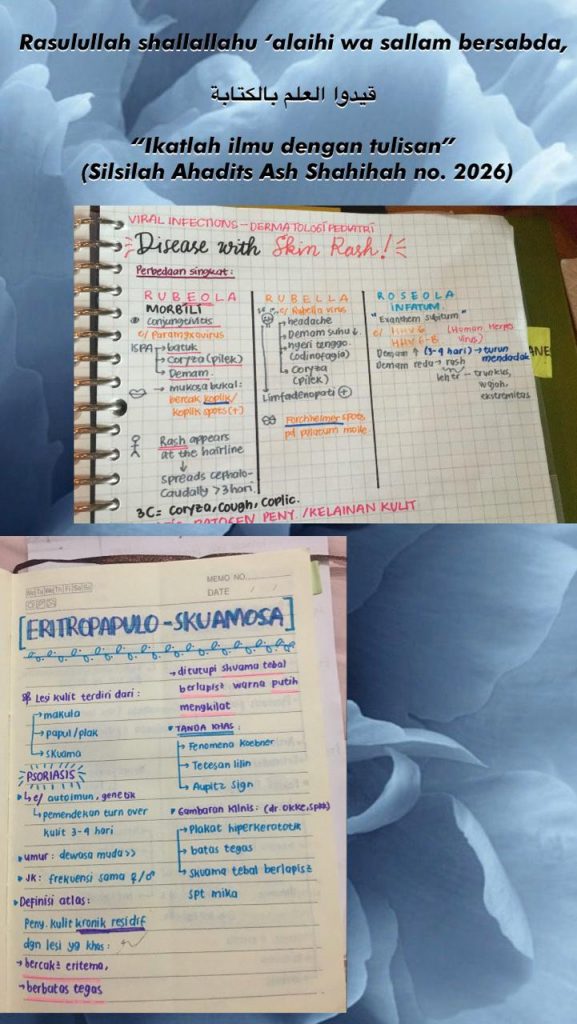 Rasulullah shallallahu ‘alaihi wa sallam bersabda,
قيدوا العلم بالكتابة
“Ikatlah ilmu dengan tulisan”
(Silsilah Ahadits Ash Shahihah no. 2026)
VIRAL INFECTIONS - DERMATOLOGI PEDIATRI
Disease with Skin Rash!
Perbedaan singkat:
RUBEOLA
MORBILI
conjungtivitis
c/ Paramyxovirus
ISPA → batuk
→ Coryza (pilek)
→ Demam.
→ mukosa bukal:
bercak koplik/
koplik spots (+)
Rash appears
at the hairline
↓
spreads cephalo-
caudally > 3 hari.
3C = coryza, cough, coplic.
RUBELLA
c/ Rubella virus
→ headache
→ Demam suhu ↓.
→ nyeri tenggo.
(odinofagia)
→ Coryza
(pilek)
Limfadenopati (+)
Forchheimer spots
pd palatum mole
ROSEOLA
INFATUM.
"Exanthem subitum"
c/ HHV 6 (Human Herpes
HHV 6-B Virus)
Demam ↑ (3-4 hari) → turun
mendadak
Demam reda → rash
leher - trunkus,
wajah,
ekstremitas
PENY. /KELAINAN KULIT
MEMO NO.
DATE / /
Mo Tu We Th Fr Sa Su
[ERITROPAPULO - SKUAMOSA]
Lesi kulit terdiri dari:
→ makula
→ papul/plak
→ skuama
PSORIASIS
↳ e/ autoimun, genetik
↳ pemendekan turn over
kulit 3-4 hari
• umur: dewasa muda >>
• JK: frekuensi sama ♀/♂
• Definisi atlas:
Peny. kulit kronik residif
dgn lesi yg khas:
→ bercak² eritema,
→ berbatas tegas
→ ditutupi skuama tebal
berlapis² warna putih
mengkilat
• TANDA KHAS:
→ Fenomena Koebner
→ Tetesan lilin
→ Aupitz sign
• Gambaran Klinis: (dr. Okke, SpKK)
→ Plakat hiperkeratotik
→ batas tegas
→ skuama tebal berlapis²
spt mika